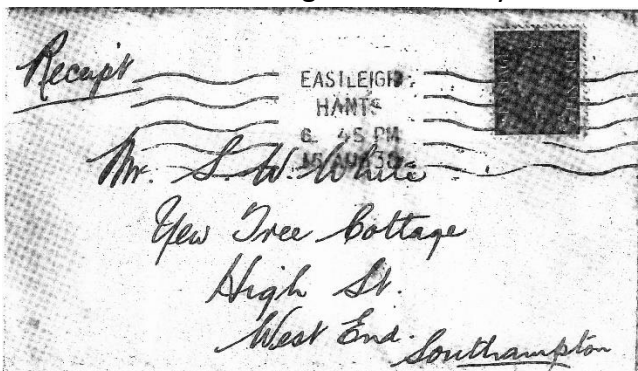 Receipt
EASTLEIGH
HANTS
6. 45 PM
Mr. S. W. White
Yew Tree Cottage
High St.
West End.
Southampton